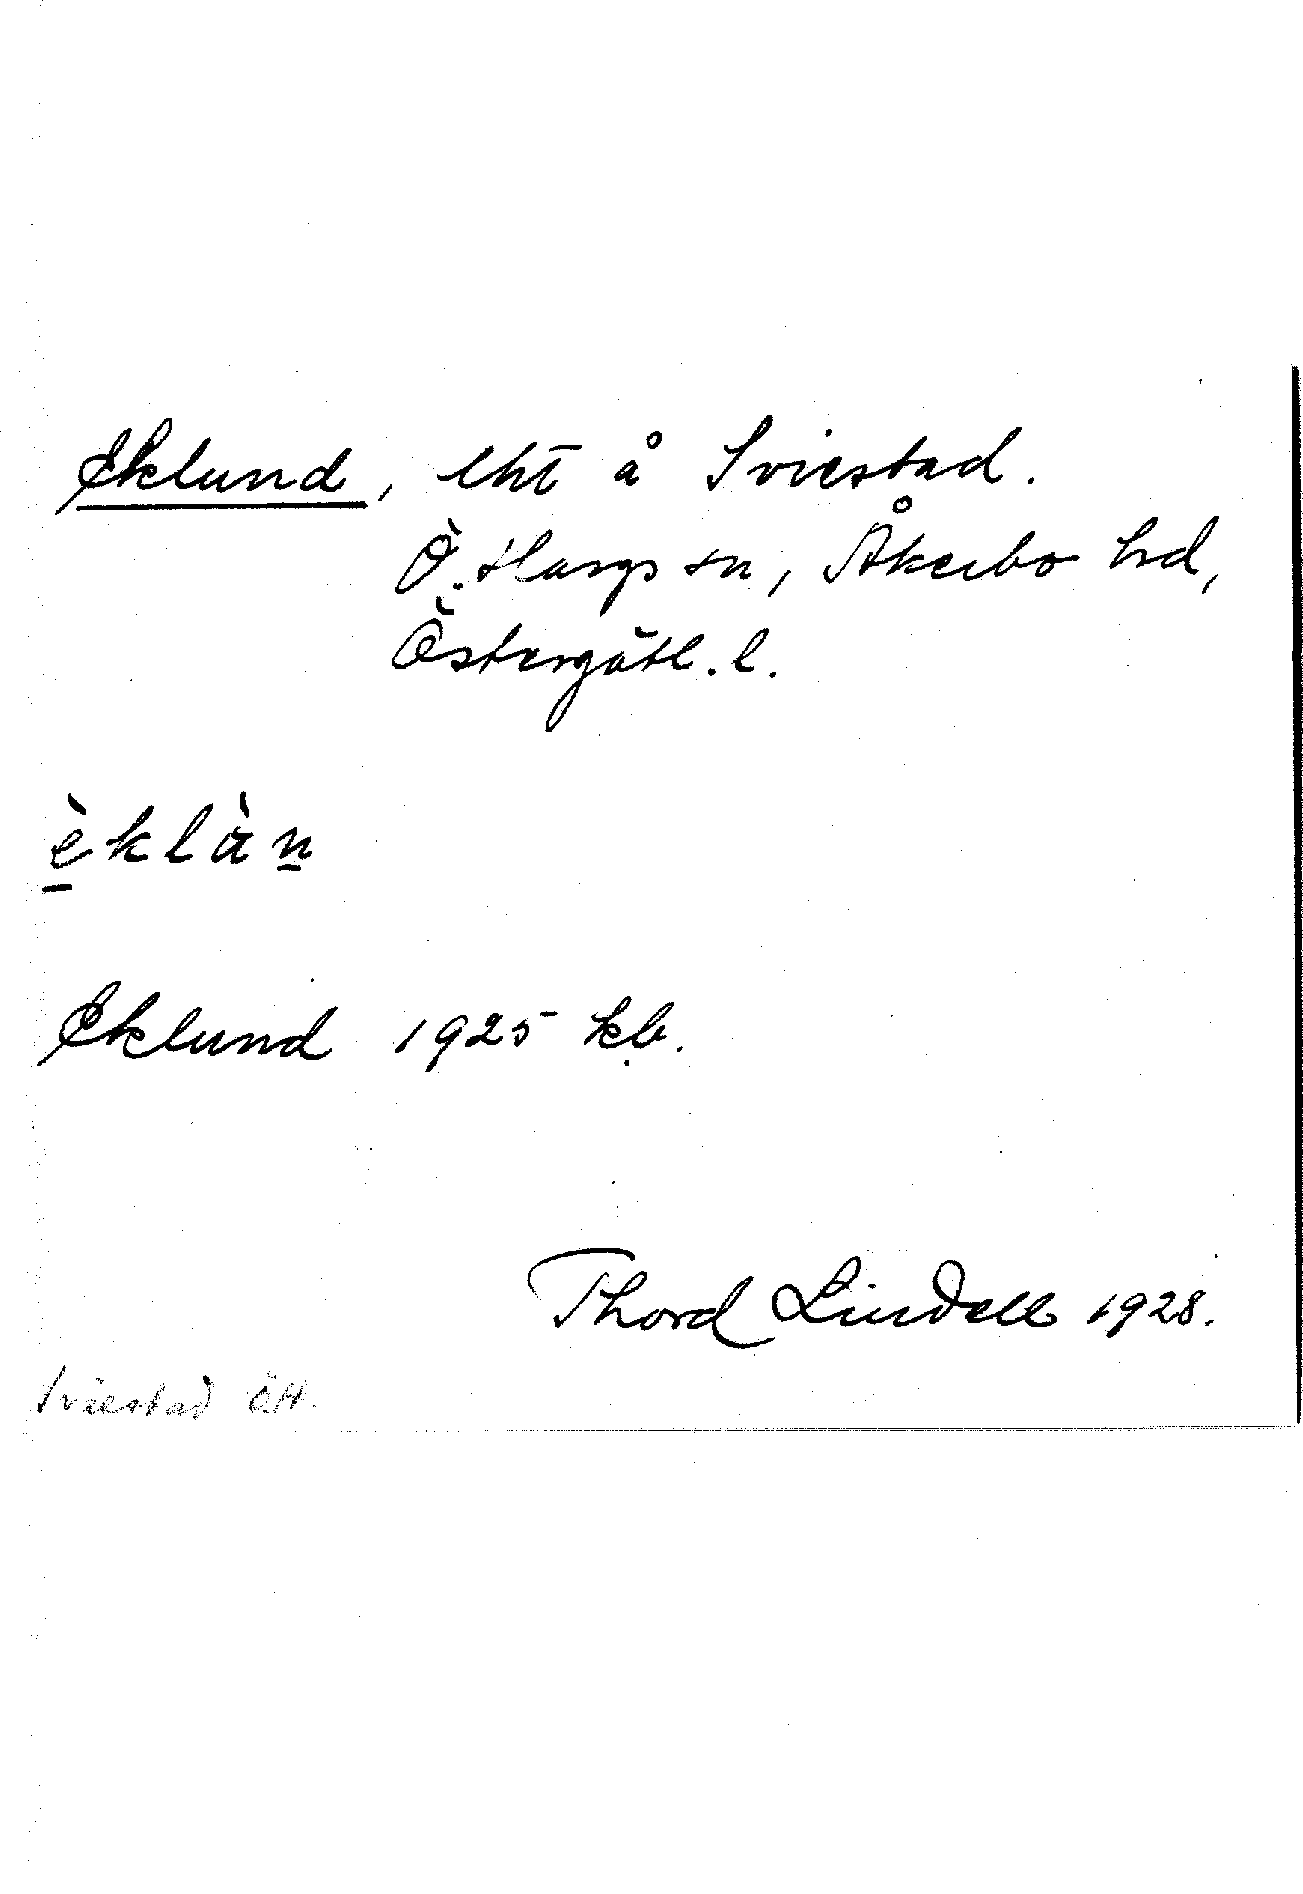 Eklund, lht å Sviestad.
Ö. Hargs sn, Åkerbo hd,
Östergötl. l.
è̱klàṉ
Eklund 1925 kb.
Thord Lindell 1928.
Sviestad Ö.H.